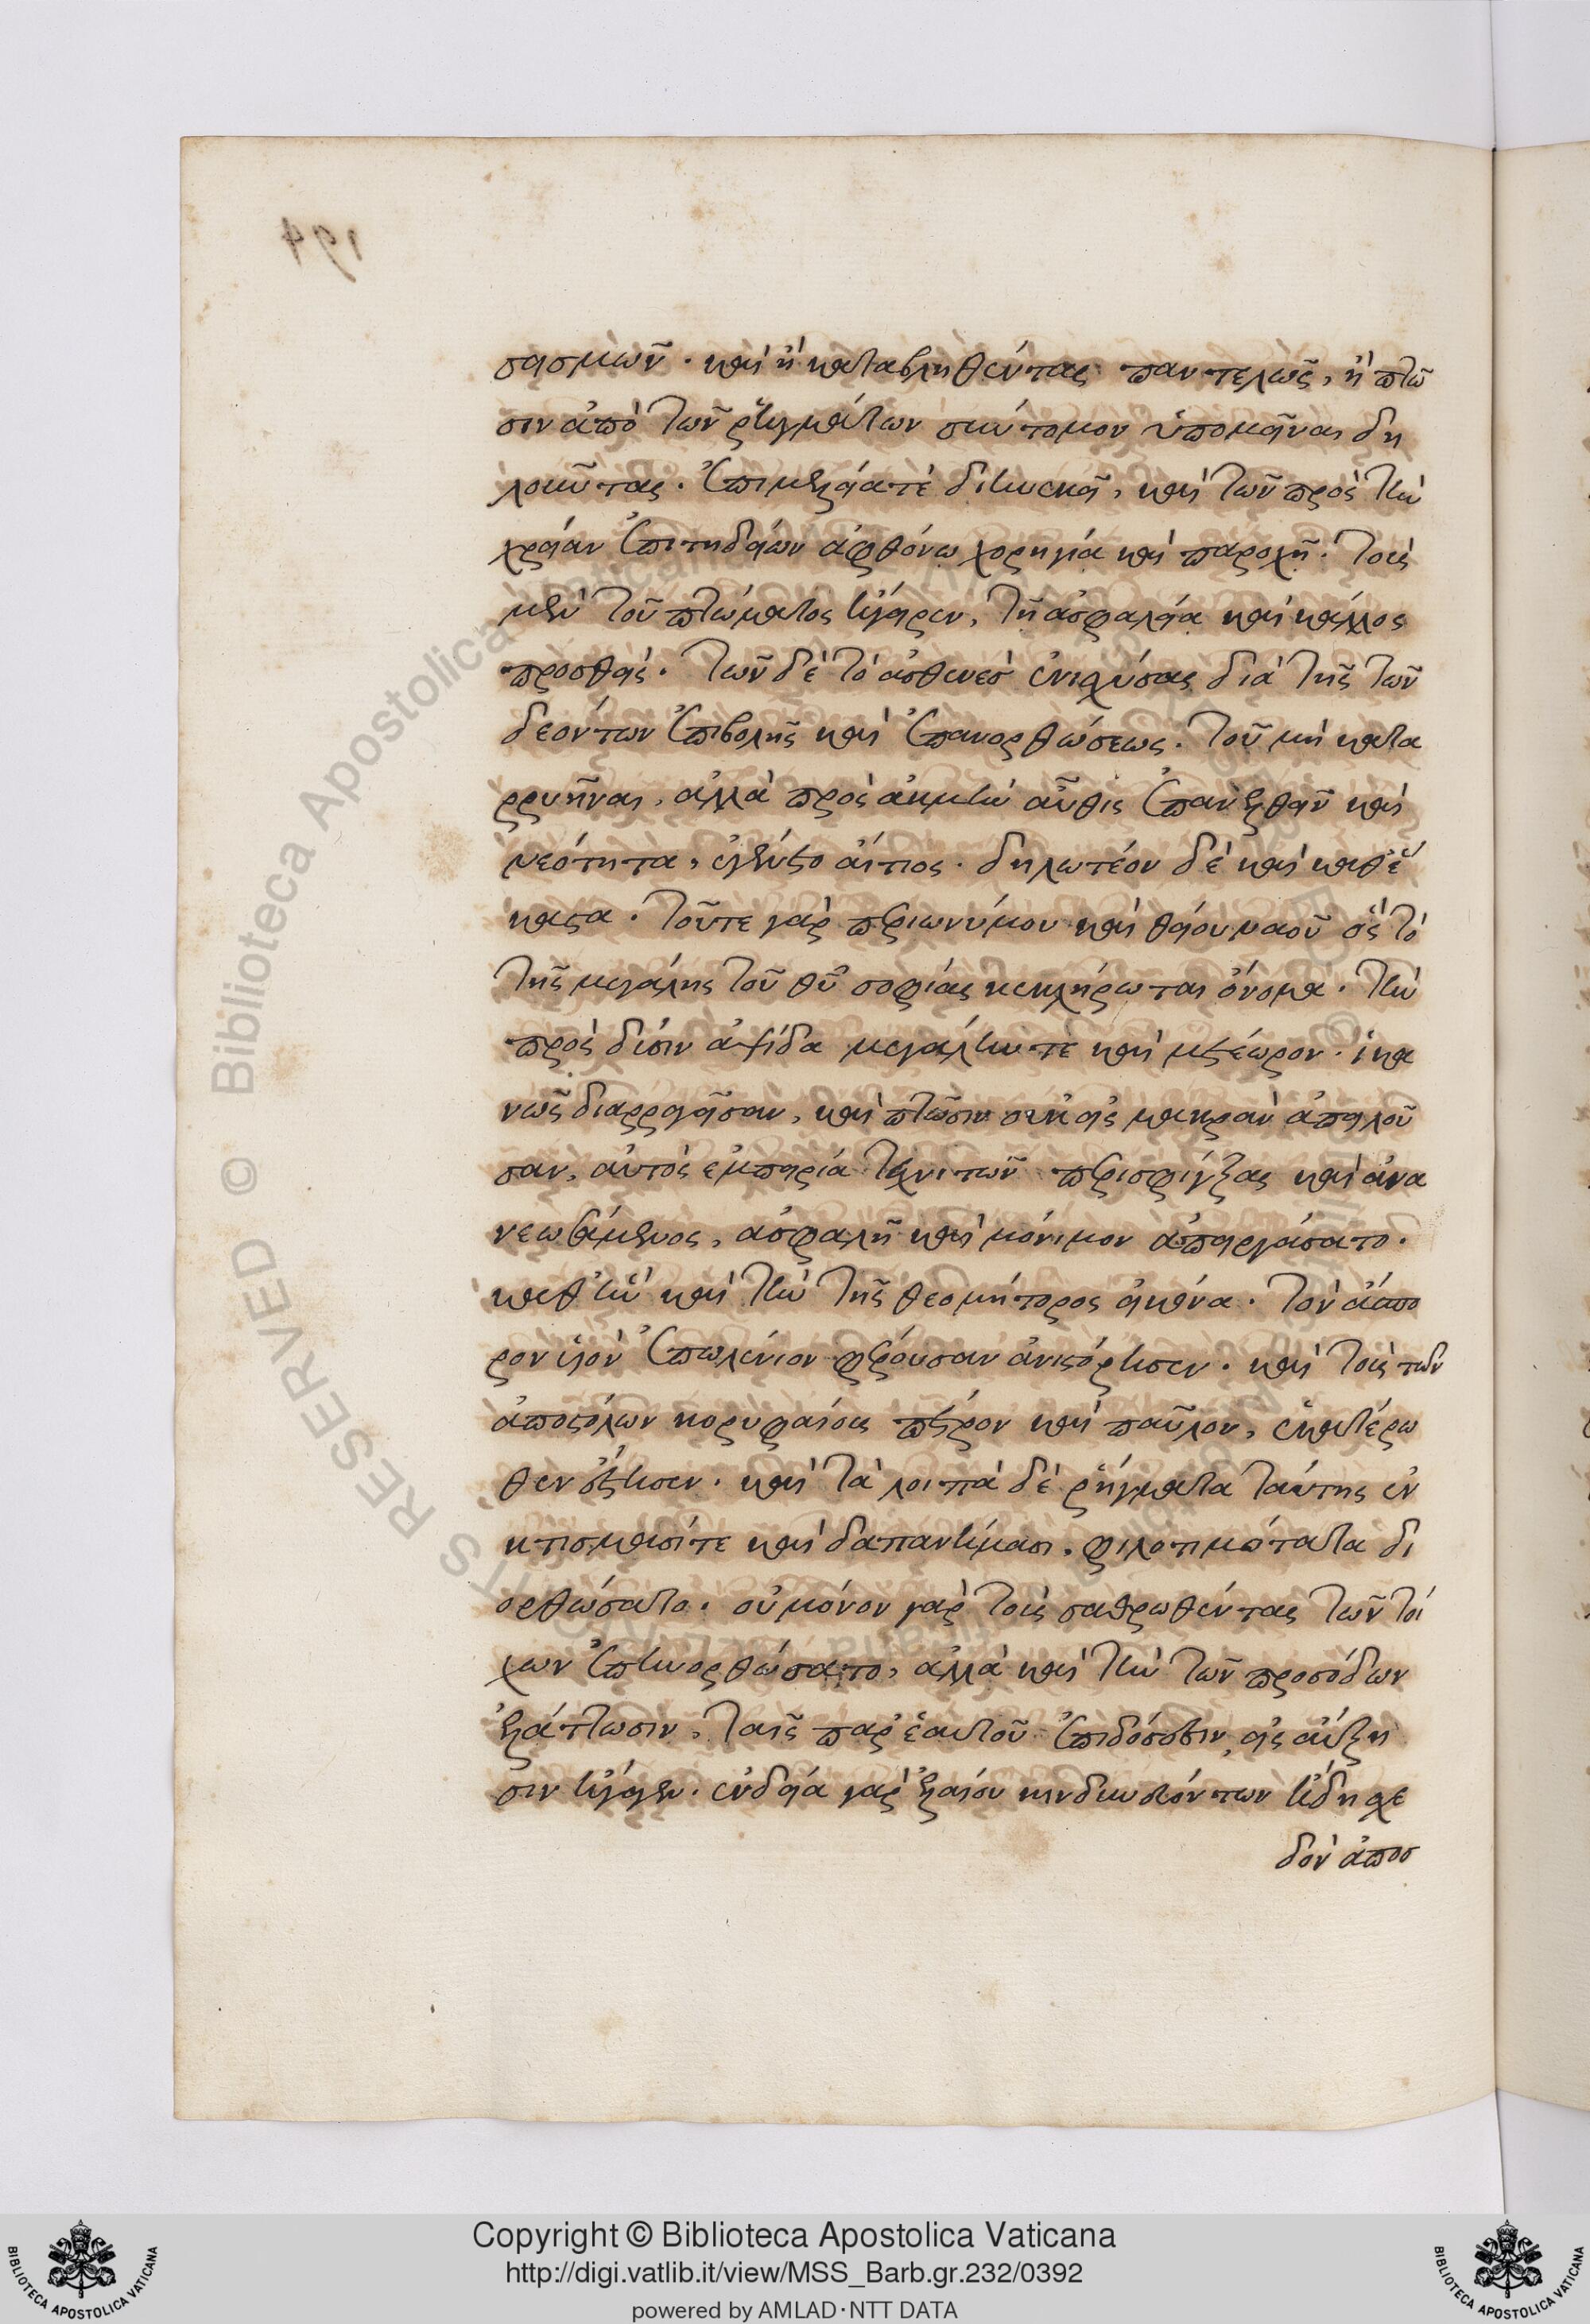 σεισμῶν. καὶ ἢ καταβληθέντας παντελῶς, ἢ πτῶ
σιν ἀπὸ τῶν ῥηγμάτων σύντομον ὑπομεῖναι δη
λοῦντας. ἐπιμελείᾳ τὲ διηνεκεῖ, καὶ τῶν πρὸς τὴν
χρείαν ἐπιτηδείων ἀφθόνῳ χορηγίᾳ καὶ παροχῇ. τοὺς
μὲν τοῦ πτώματος ἤγειρεν, τῇ ἀσφαλείᾳ καὶ κάλλος
προσθείς. τῶν δὲ τὸ ἀσθενὲς ἐνισχύσας διὰ τῆς τῶν
δεόντων ἐπιβολῆς καὶ ἐπανορθώσεως. τοῦ μὴ κατα
ρρυῆναι, ἀλλὰ πρὸς ἀκμὴν αὖθις ἐπανελθεῖν καὶ
νεότητα, ἐγένετο αἴτιος. δηλωτέον δὲ καὶ καθ' ἕ
καστα. τοῦτε γὰρ περιωνύμου καὶ θείου ναοῦ ὃς τὸ
τῆς μεγάλης τοῦ θῦ σοφίας κεκλήρωται ὄνομα. τὴν
πρὸς δύσιν ἁψίδα μεγάλην τὲ καὶ μετέωρον. ἱκα
νῶς διαρραγεῖσαν, καὶ πτῶσιν οὐκ εἰς μακρὰν ἀπειλοῦ
σαν, αὐτὸς ἐμπειρίᾳ τεχνιτῶν περισφίγξας καὶ ἀνα
νεωσάμενος, ἀσφαλῆ καὶ μόνιμον ἀπειργάσατο.
καθ' ἣν καὶ τὴν τῆς θεομήτορος εἰκόνα. τὸν ἄσπο
ρον υἱὸν ἐπωλένιον φέρουσαν ἀνιστόρησεν. καὶ τοὺς τῶν
ἀποστόλων κορυφαίους πέτρον καὶ παῦλον, ἑκατέρω
θεν ἔστησεν. καὶ τὰ λοιπὰ δὲ ῥήγματα ταύτης ἐν
κτίσμασί τε καὶ δαπανήμασι. φιλοτιμότατα δι
ορθώσατο. οὐ μόνον γὰρ τοὺς σαθρωθέντας τῶν τοί
χων ἐπηνορθώσατο, ἀλλὰ καὶ τὴν τῶν προσόδων
ἐλάττωσιν, ταῖς παρ' ἑαυτοῦ ἐπιδόσεσιν εἰς αὔξη
σιν ἤγαγεν. ἐνδείᾳ γὰρ ἐλαίου κινδυνευόντων ἤδη σχε
δὸν ἀποσ
194
Copyright © Biblioteca Apostolica Vaticana
http://digi.vatlib.it/view/MSS_Barb.gr.232/0392
powered by AMLAD·NTT DATA
BIBLIOTECA APOSTOLICA VATICANA
BIBLIOTECA APOSTOLICA VATICANA